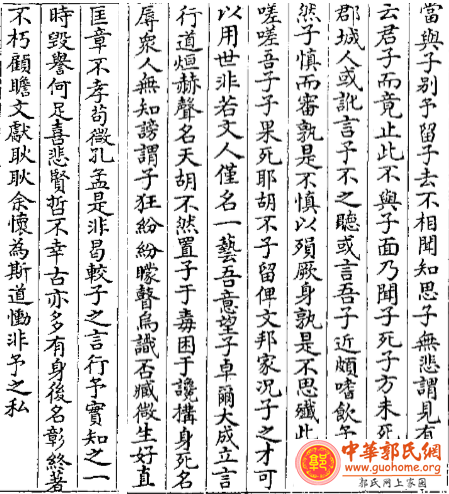 當與子別予留子去不相聞知思子無悲謂見有
云君子而竟止此不與子面乃聞子死子方未死
郡城人或訛言予不之聽或言吾子近頗嗜飲予
然子慎而審孰是不慎以殞厥身孰是不思殲此
嗟嗟吾子子果死耶胡不子留俾文邦家況子之才可
以用世非若文人僅名一藝吾意望子卓爾大成立言
行道烜赫聲名天胡不然置子于毒困于讒搆身死名
辱衆人無知謗謂子狂紛紛矇瞽烏識否臧微生好直
匡章不孝苟微孔孟是非曷較子之言行予實知之一
時毀譽何足喜悲賢哲不幸古亦多有身後名彰終著
不朽顧瞻文獻耿耿余懷為斯道慟非予之私
中華郭氏網
www.guohome.org
郭氏网上家園